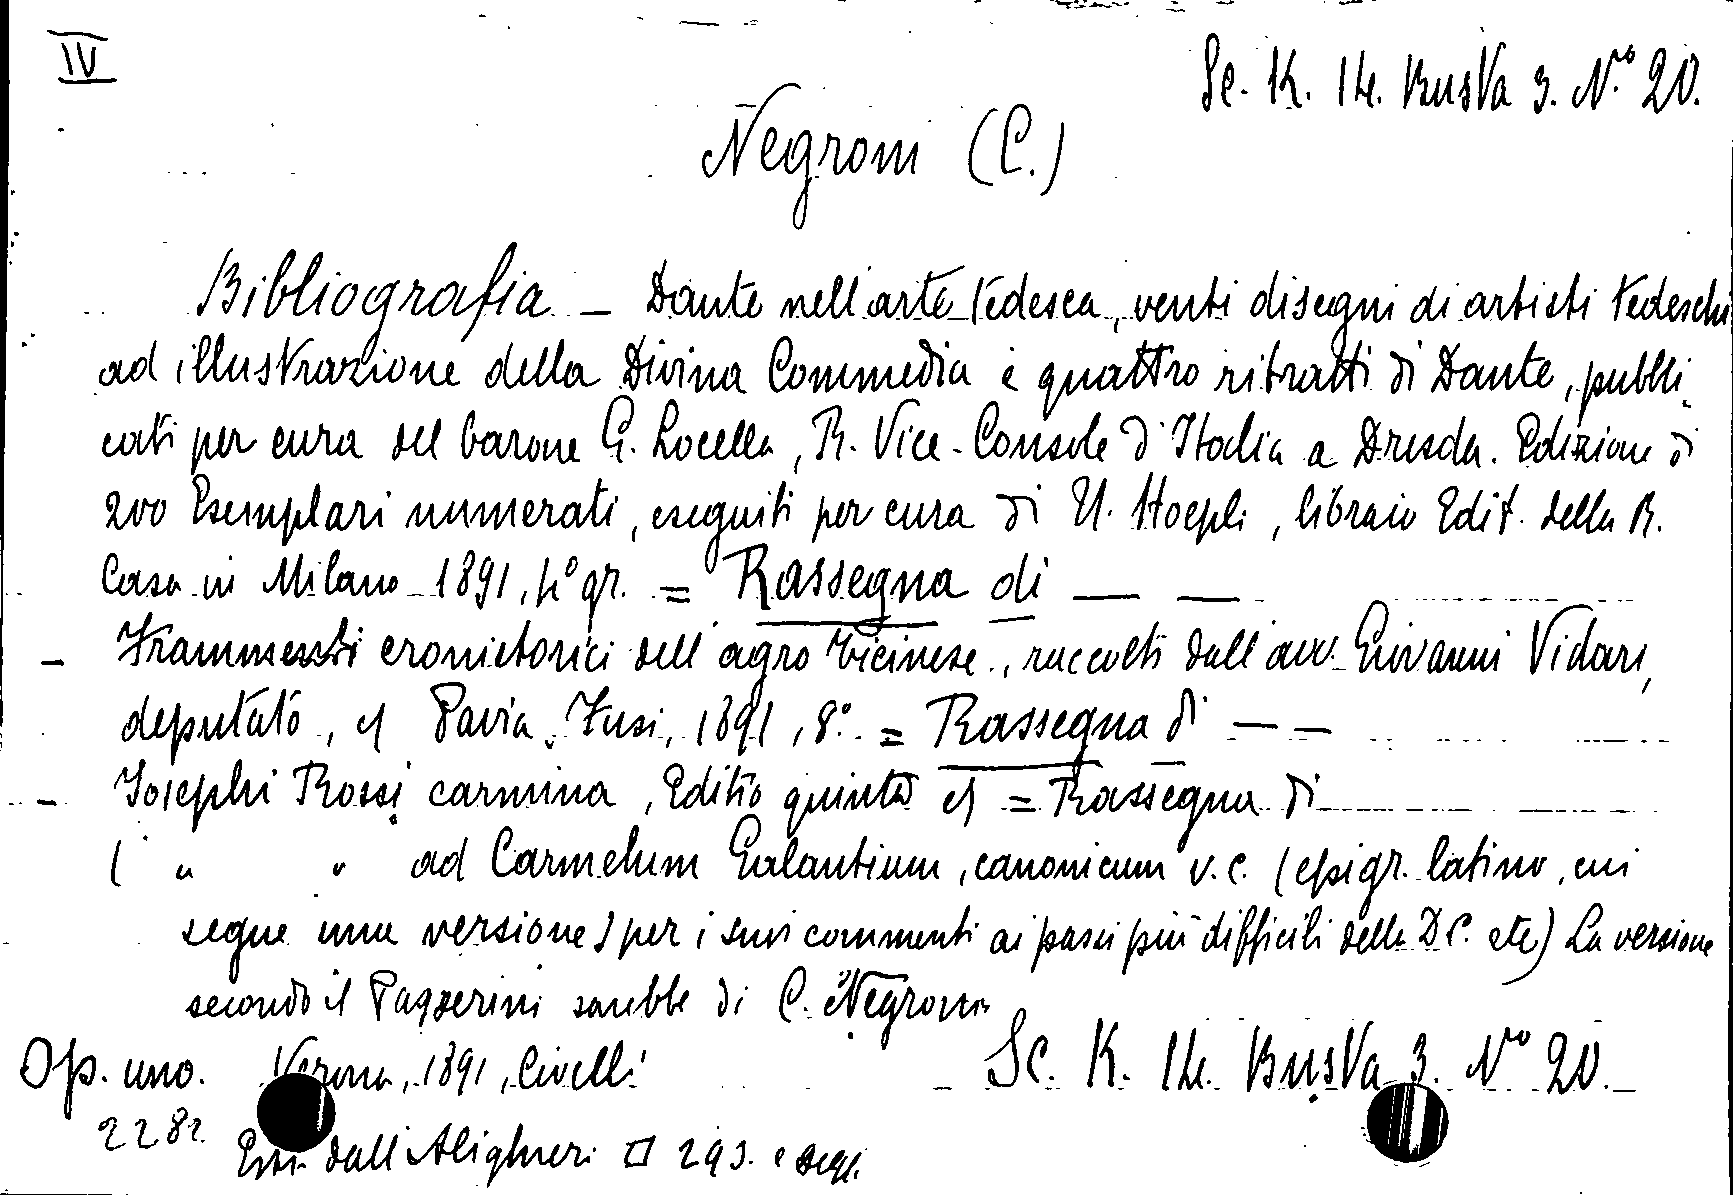 IV
Sc. K. 14. Busta 3. N.º 20.
Negroni (C.)
Bibliografia - Dante nell'arte tedesca, venti disegni di artisti tedeschi
ad illustrazione della Divina Commedia e quattro ritratti di Dante, pubbli-
cati per cura del barone G. Locella, R. Vice-Console d'Italia a Dresda. Edizione di
200 Esemplari numerati, eseguiti per cura di U. Hoepli, libraio Edit. della R.
Casa in Milano 1891, 4º gr. = Rassegna di — —
- Frammenti cronistorici dell'agro Ticinese, raccolti dall'avv. Giovanni Vidari,
deputato, Pavia, Fusi, 1891, 8º. = Rassegna di — —
- Josephi Rossi carmina, Editio quinta = Rassegna di
( " " ad Carmelum Galantium, canonicum v. c. (epigr. latino, cui
segue una versione) per i suoi commenti ai passi più difficili della D C. etc) La versione
secondo il Passerini sarebbe di C. Negroni
Op. uno. Verona, 1891, Civelli
Sc. K. 14. Busta 3. Nº 20.
2282
Estr. dall'Alighieri □ 293. e segg.